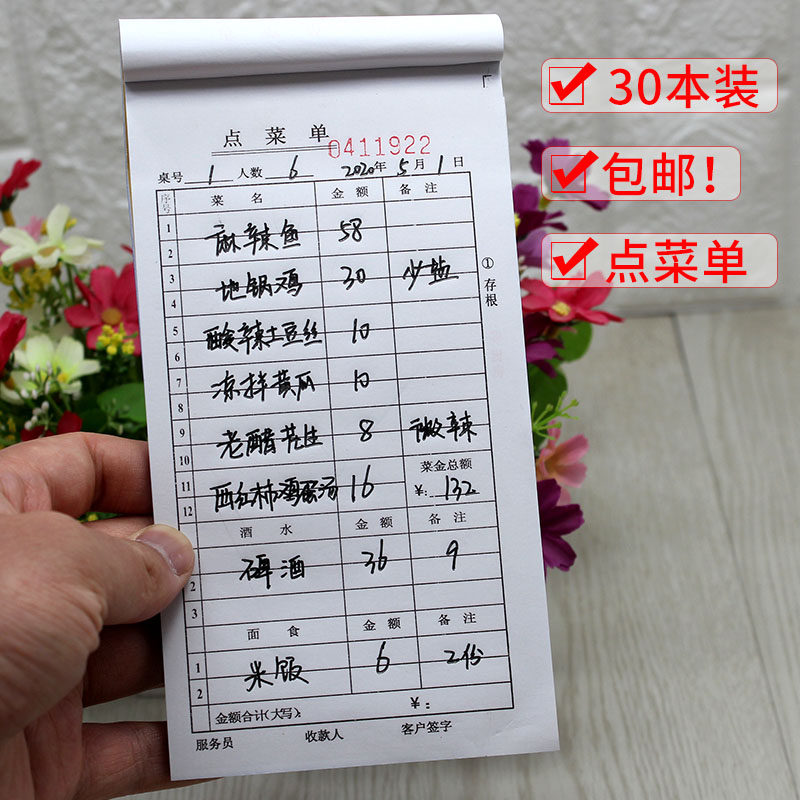 30本装
包邮!
点菜单
点菜单
0411922
桌号 1 人数 6 2020年 5月 1日
序号 菜名 金额 备注
1
2 麻辣鱼 58
3
4 地锅鸡 30 少盐
5
6 酸辣土豆丝 10
7
8 凉拌黄瓜 10
9
10 老醋花生 8 微辣
11 菜金总额
12 西红柿鸡蛋汤 16 ¥: 132
酒水 金额 备注
2 碑酒 36 9
3
面食 金额 备注
1 米饭 6 2份
2
金额合计(大写): ¥:
服务员 收款人 客户签字
①存根